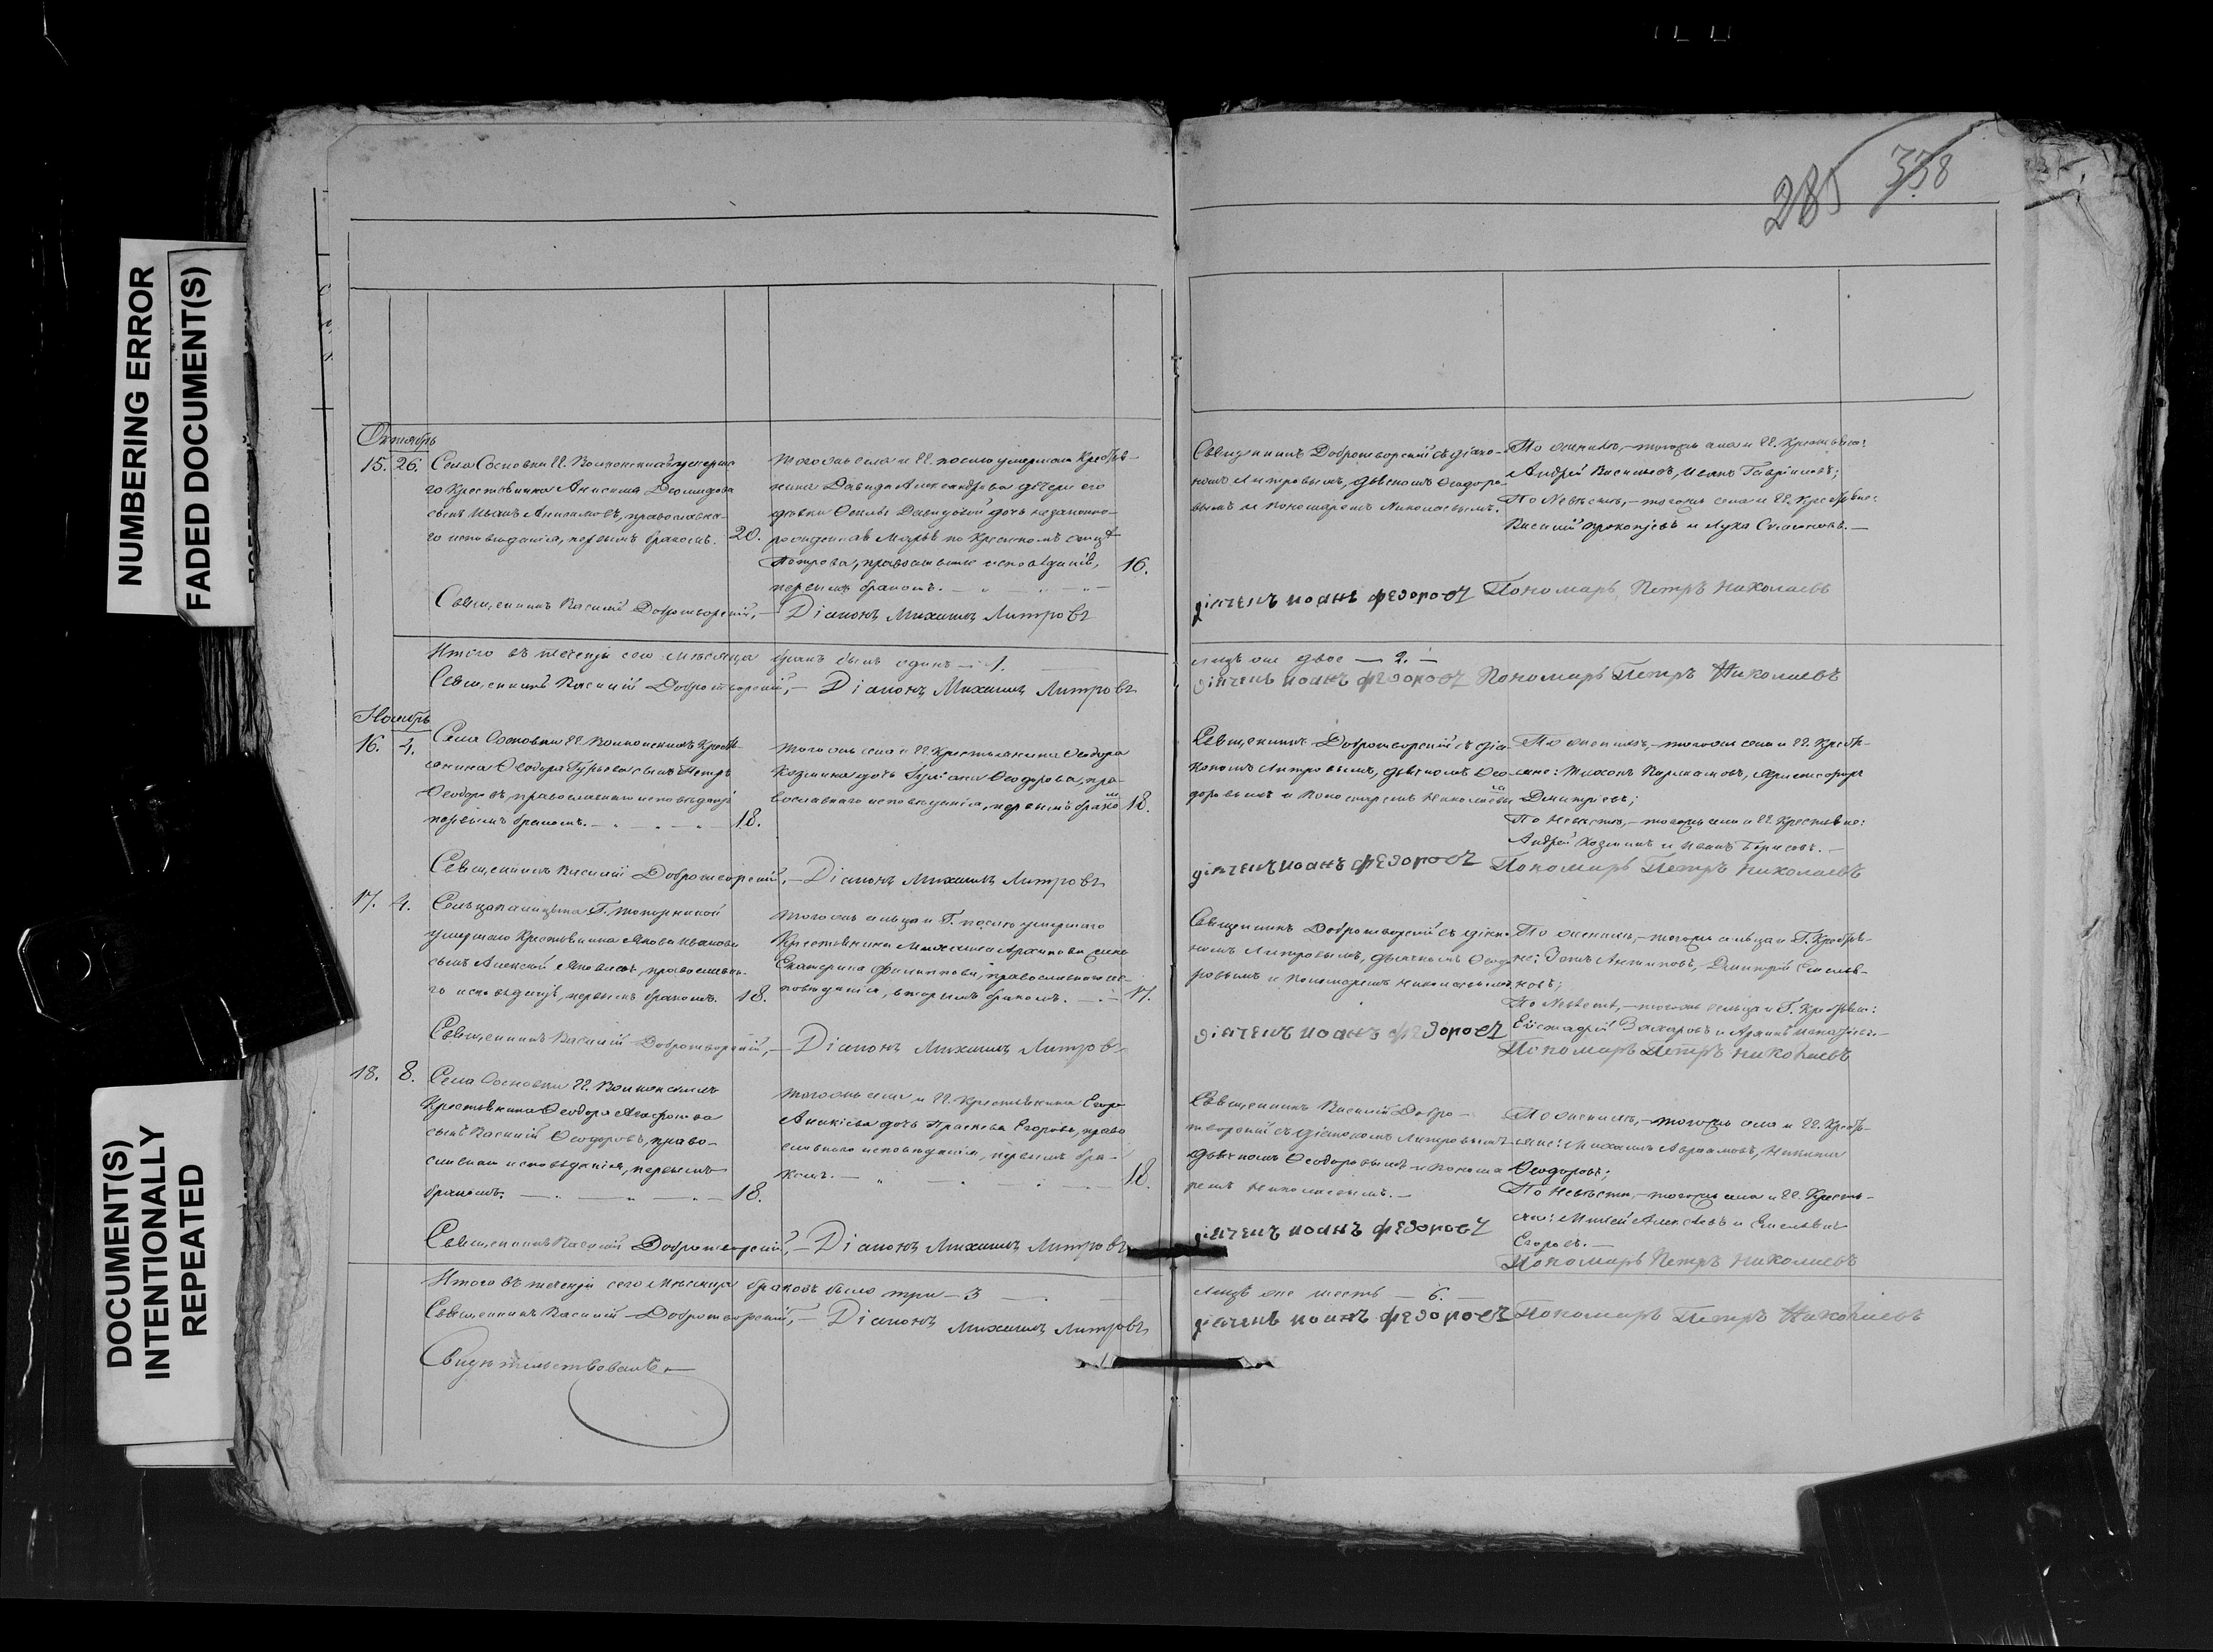 NUMBERING ERROR
FADED DOCUMENT(S)
DOCUMENT(S)
INTENTIONALLY
REPEATED
285 338
Октябрь
15. 26. Села Сосновки
го Крестьянина Анисима Деомидова
сынъ Иванъ Анисимовъ, православна-
го исповѣданія, первымъ бракомъ. 20.
тогожъ села и послѣ умершаго Крестья-
нина Давида Александрова дочери его
дѣвки Давидовой дочь незаконно-
рожденная Марья по Крестномъ отцѣ
Петрова, православнаго исповѣданія, 16.
первымъ бракомъ.
Священникъ Доброторскій съ діако-
номъ Митровымъ, дьячкомъ Ѳеодоро-
вымъ и пономаремъ Николаевымъ.
По женихѣ, – тогожъ села и Крестьяне:
Андрей Васильевъ, Иванъ Гавриловъ;
По Невѣстѣ, – тогожъ села и Крестьяне:
Василій Прокопьевъ и Лука Симоновъ. –
Священникъ Василій Доброторскій, – Діаконъ Михаилъ Митровъ
дьячекъ иоанъ федоровъ Пономарь Петръ Николаевъ
Итого въ теченіи сего мѣсяца бракъ былъ одинъ – 1.
лицъ же двое – 2. –
Священникъ Василій Доброторскій, – Діаконъ Михаилъ Митровъ
дьячекъ иоанъ федоровъ Пономарь Петръ Николаевъ
Ноябрь
16. 4. Села Сосновки Крестья-
нина Ѳеодора Гурьева сынъ Петръ
Ѳеодоровъ, православнаго исповѣданія
первымъ бракомъ. 18.
тогожъ села и Крестьянина Ѳеодора
Козмина дочь Ѳеодорова, пра-
вославнаго исповѣданія, первымъ бракомъ 18.
Священникъ Доброторскій съ діа-
кономъ Митровымъ, дьячкомъ Ѳео-
доровымъ и Пономаремъ Николаевымъ
По женихѣ, – тогожъ села и Крестья-
не: Дмитріевъ;
По Невѣстѣ, – тогожъ села и Крестьяне:
Андрей Козминъ и Иванъ Борисовъ. –
Священникъ Василій Доброторскій, – Діаконъ Михаилъ Митровъ
дьячекъ иоанъ федоровъ Пономарь Петръ Николаевъ
17. 4. Сельца Г.
умершаго Крестьянина Якова Иванова
сынъ Алексѣй Яковлевъ, православна-
го исповѣданія, первымъ бракомъ. 18.
тогожъ сельца и Г. послѣ умершаго
Крестьянина Михаила Архипова жена
Екатерина Филиппова, православнаго ис-
повѣданія, вторымъ бракомъ. 17.
Священникъ Доброторскій съ діако-
номъ Митровымъ, дьячкомъ Ѳеодо-
ровымъ и Пономаремъ Николаевымъ
По женихѣ, – тогожъ сельца и Г. Крестья-
не: Зотъ Антиповъ, Дмитрій Емелья-
новъ;
По Невѣстѣ, – тогожъ сельца и Г. Крестьяне:
Захаровъ и
Священникъ Василій Доброторскій, – Діаконъ Михаилъ Митровъ
дьячекъ иоанъ федоровъ Пономарь Петръ Николаевъ
18. 8. Села Сосновки
Крестьянина Ѳеодора Агафонова
сынъ Василій Ѳеодоровъ, право-
славнаго исповѣданія, первымъ
бракомъ. 18.
тогожъ села и Крестьянина Егора
дочь Праскева Егорова, право
славнаго исповѣданія, первымъ бра-
комъ. 18.
Священникъ Василій Добро-
торскій съ діакономъ Митровымъ
дьячкомъ Ѳеодоровымъ и Понома
ремъ Николаевымъ. –
По женихѣ, – тогожъ села и Крестья-
не: Михаилъ Авраамовъ, Никита
Ѳеодоровъ;
По Невѣстѣ, – тогожъ села и Кресть-
яне: Алексѣевъ и Емельянъ
Егоровъ. –
Священникъ Василій Доброторскій, – Діаконъ Михаилъ Митровъ
дьячекъ иоанъ федоровъ Пономарь Петръ Николаевъ
Итого въ теченіи сего мѣсяца браковъ было три – 3
лицъ же шесть – 6. –
Священникъ Василій Доброторскій, – Діаконъ Михаилъ Митровъ
дьячекъ иоанъ федоровъ Пономарь Петръ Николаевъ
Свидѣтельствовалъ